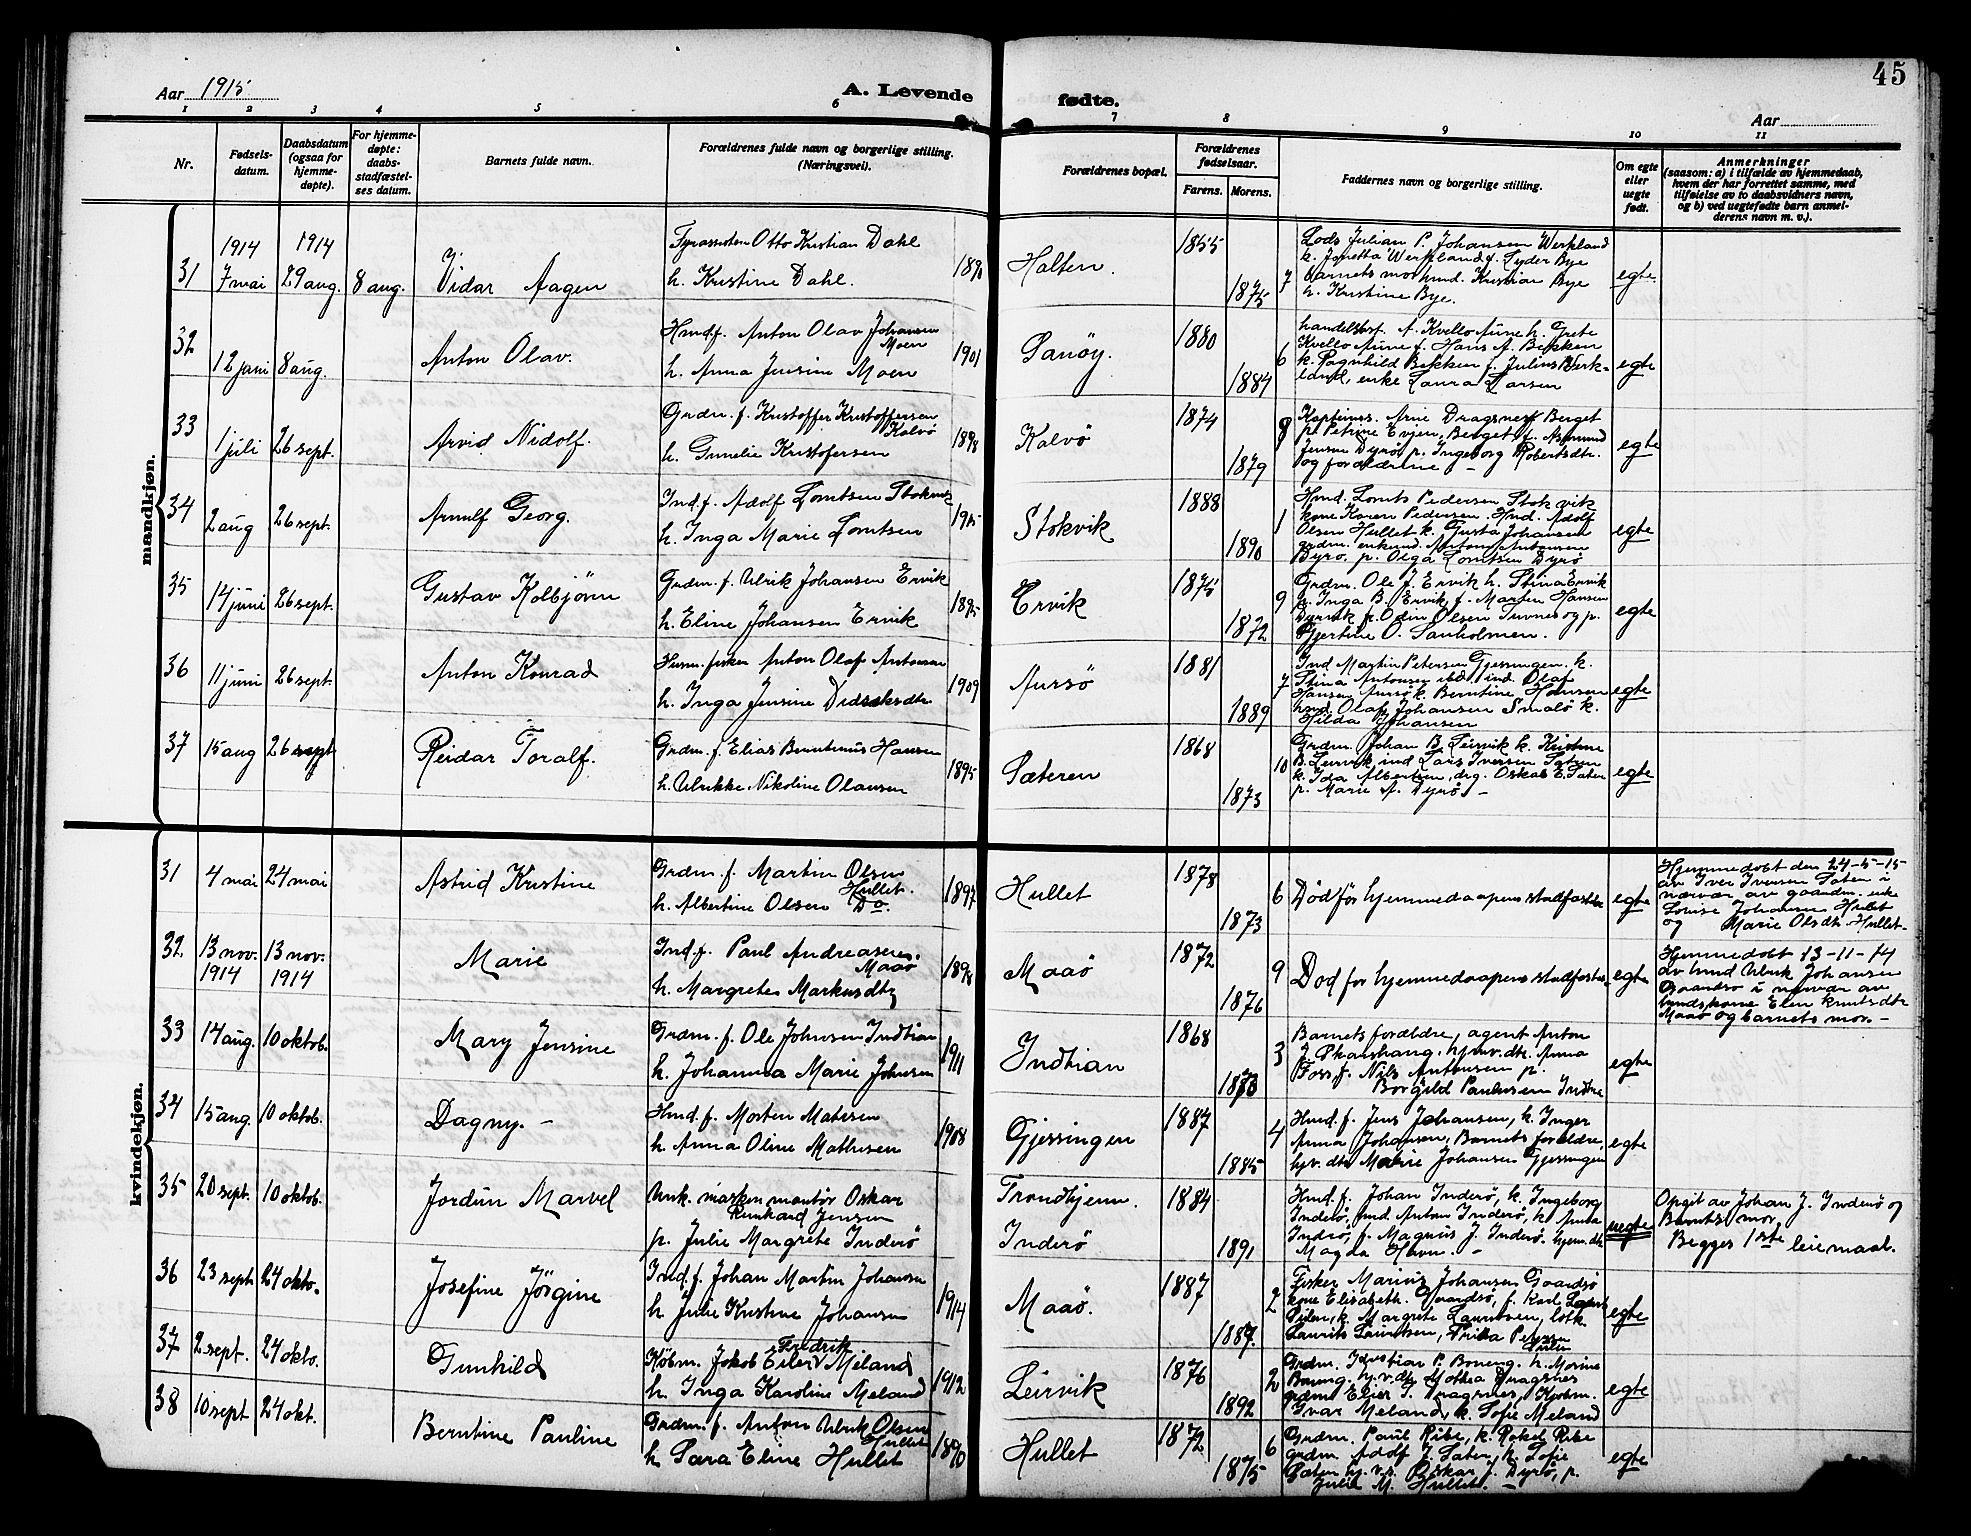 45
Aar 1915
A. Levende
fødte.
Aar
1 2 3 4 5 6 7 8 9 10 11
Nr.
Fødsels-
datum.
Daabsdatum
(ogsaa for
hjemme-
døpte).
For hjemme-
døpte:
daabs-
stadfæstel-
ses datum.
Barnets fulde navn.
Forældrenes fulde navn og borgerlige stilling.
(Næringsvei).
Forældrenes bopæl.
Forældrenes
fødselsaar.
Farens. Morens.
Faddernes navn og borgerlige stilling.
Om egte
eller
uegte
født.
Anmerkninger
(saasom: a) i tilfælde av hjemmedaab,
hvem der har forrettet samme, med
tilføielse av to daabsvidners navn,
og b) ved uegtefødte barn anmel-
derens navn m. v.).
mandkjøn.
31
1914
7 mai
1914
29 aug.
8 aug.
Vidar Aagen
Fyrassisten Otto Kristian Dahl
h. Kristine Dahl.
1890
Halten.
1855
1875
7
Lods Julian P. Johansen Werkland
k. Jonetta Werkland f. Syder Bye
Barnets mor hmd. Kristian Bye
h. Kristine Bye.
egte
32
12 juni
8 aug.
Anton Olav.
Hmd. f. Anton Olav Johansen
Moen
h. Anna Jensine Moen
1901
Sanöy.
1880
1884
6
handelsbest. A. Kvello Aune h. Grete
Kvello Aune f. Hans A. Bekken
k. Ragnhild Bekken f. Julius Werk-
land, enke Laura Larsen
egte
33
1 juli
26 sept.
Arvid Nidolf.
Grdm. f. Kristoffer Kristoffersen
Kalvö
h. Gunelie Kristofersen
1898
Kalvö
1874
1879
8
Kapteins. Arne Dragsnes Berget
p. Petrine Evjen, Berget f. Asmund
Jensen Dyrö p. Ingeborg Robertsdtr.
og forældrene –
egte
34
2 aug
26 sept.
Arnulf Georg.
Ind. f. Adolf Lomtsen Stokvik
h. Inga Marie Lomtsen
1915
Stokvik
1888
1890
1
Hmd. Lomts Pedersen Stokvik
kone Karen Pedersen. Hmd. Adolf
Olsen Hullet k. Gusta Johansen
grdm. enkemd. Anton Antonsen
Dyrö, p. Olga Lomtsen Dyrö
egte
35
14 juni
26 sept.
Gustav Kolbjörn
Grdm. f. Ulrik Johansen Ervik
h. Eline Johansen Ervik
1895
Ervik
1875
1872
9
Grdm. Ole J. Ervik h. Stina Ervik
p. Inga B. Ervik f. Marten Hansen
Dyrvik p. Odin Olsen Tuvnes og p.
Gjertine O. Sanholmen.
egte
36
11 juni
26 sept.
Anton Konrad
Husm. fisker Anton Olaf Antonsen
h. Inga Jensine Didriksdtr
1909
Aursö
1881
1889
7
Ind Martin Petersen Gjessingen. k.
Stina Antonsen ibd. ind. Olaf
Hansen Aursö k. Berntine Hansen
hmd. Olaf Johansen Smalö k.
Hilda Johansen
egte
37
15 aug
26 sept
Reidar Toralf.
Grdm. f. Elias Berntinus Hansen
h. Ulrikke Nikoline Olausen
1895
Sæteren
1868
1873
10
Grdm. Johan B. Leirvik k. Kristine
B. Leirvik ind Lars Iversen Sæten
k. Ida Albertsen, drg. Oskar E. Sæter
p. Marie A. Dyrö –
egte
kvindekjøn.
31
4 mai
24 mai
Astrid Kristine
Grdm. f. Martin Olsen
Hullet.
h. Albertine Olsen Do.
1897
Hullet
1878
1873
6
Död för hjemmedaapens stadfæstelse
egte
Hjemmedöbt den 24-5-15
av Iver Iversen Sæten i
nærvær av gaardm. enke
Louise Johansen Hullet
og Marie Olsdtr. Hullet-
32
13 nov.
1914
13 nov.
1914
Marie
Ind. f. Paul Andreasen.
Maaö
h. Margrete Markusdtr
1898
Maaö
1872
1876
9
Död for hjemmedaapens stadfæstelse
egte
Hjemmedöbt 13-11-14
av hmd Ulrik Johansen
Gaardsö i nærvær av
hmdskone Elen Knutsdtr
Maaö og barnets mor. –
33
14 aug.
10 oktob.
Mary Jensine
Grdm. f. Ole Johnsen Indtian
h. Johanna Marie Johnsen
1911
Indtian
1868
1873
3
Barnets forældre, agent Anton
J. Skanshaug. hjmv. dtr. Anna
Foss, f. Nils Antonsen p.
Borgild Paulsen Indtian
egte
34
15 aug.
10 oktob.
Dagny. –
Hmd. f. Morten Matisen
h. Anna Oline Mathisen
1908
Gjessingen
1887
1885
4
Hmd. f. Jens Johansen, k. Inger
Anna Johansen, Barnets forældre,
hjv. dtr Marie Johansen Gjessingen
egte
35
20 sept.
10 oktob.
Jordun Marvel
Unk. marken montör Oskar
Reinhard Jensen
p. Julie Margrete Inderö
Trondhjem.
Inderö
1884
1891
Hmd. f. Johan Inderö, k. Ingeborg
Inderö, hmd Anton Inderö, k. Anna
Inderö, f. Magnus J. Inderö. hjem. dtr.
Magda Havn. –
uegte
Opgit av Johan J. Inderö og
Barnets mor.
Begges 1ste leiemaal.
36
23 sept
24 okto.
Josefine Jörgine
Ind. f. Johan Martin Johansen
h Julie Kristine Johansen
1914
Maaö.
1887
1887.
2
Fisker Marius Johansen Gaardsö
kone Elisabeth. Gaardsö, f. Karl
k. Margrete Lauritsen,
Laurits Lauritsen,
egte
37
2 sept.
24 okto.
Gunhild
Fredrik
Köbm. Jakob Eiler Meland
h. Inga Karoline Meland
1912
Leirvik
1876
1892
2
Grdm. Kristian P. Boneng. h. Marine
Boneng. hj. v. dtr Mothea Dragsnes
grdm Elier S. Dragsnes, Kjöbm.
Ivar Meland, k. Sofie Meland
egte
38
10 sept
24 okt.
Berntine Pauline
Grdm. f. Anton Ulrik Olsen
Hullet
h Sara Eline Hullet
1890
Hullet
1872
1875
6
Grdm. Paul Ribe, k. Rakel Ribe
grdm Adolf J. Sæter, k. Sofie
Sæter hj. v. s. Oskar J. Dyrö, p.
Julie M. Hullet. –
egte